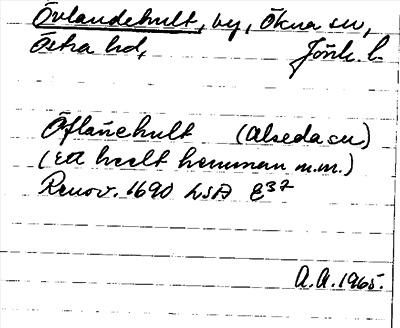 Övlandehult, by, Ökna sn,
Östra hd, Jönk. l.
Öflanehult (Alseda sn)
(Ett heelt hemman m.m.)
Renov. 1690 LSA E37
A.A. 1965.